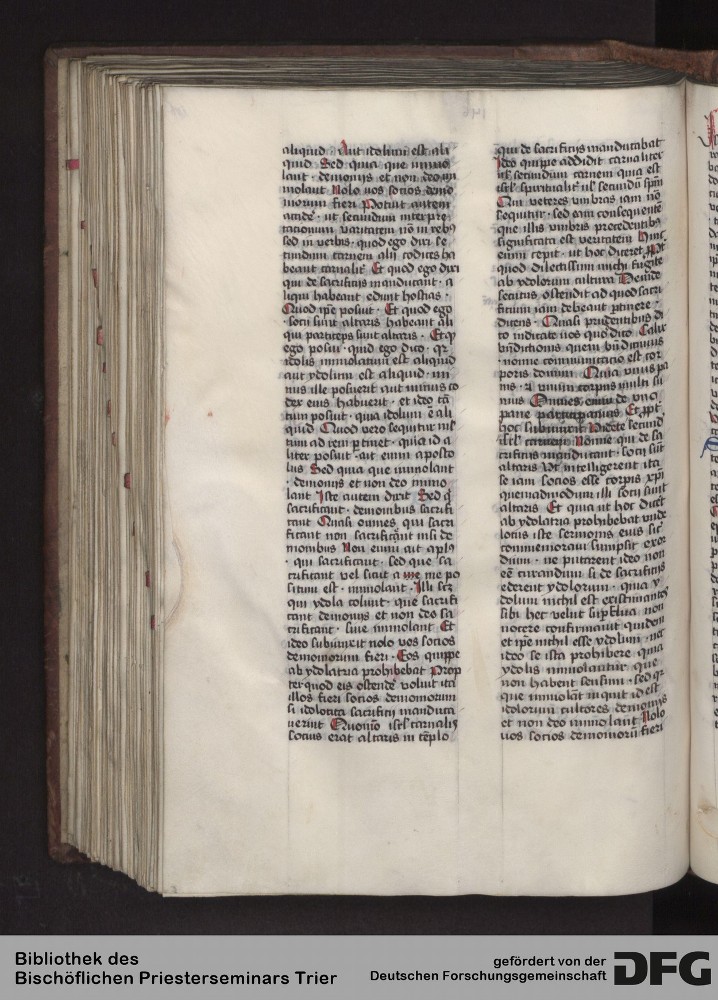 aliquid · Aut idolum est ali
quid Sed quia que immo
lant · demonijs et non deo im
molant Nolo uos socios demo
niorum fieri Potuit autem
accidere · ut secundum interpre
tationum varitatem nō in rebꝰ
sed in verbis · quod ego dixi se
cundum carnem alij codices ha
beant carnalē Et quod ego dixi
qui de sacrificijs manducant · a
liqui habeant edunt hostias ·
Quod ipē posuit · Et quod ego
· socij sunt altaris habeant ali
qui particeps sunt altaris · Et qꝫ
ego posui · quid ego dico · qr
idolis immolatum est aliquid
aut ydolum est aliquid · mi
nus ille posuerit aut minus co
dex eius habuerit · et ideo tā
tum posuit · quia idolum ē ali
quid Quod vero sequitur nil
tum ad rem ptinet · quia id a
liter posuit · ait enim aposto
lus Sed quia que immolant
· demonijs et non deo immo
lant Iste autem dixit Sed q̄
sacrificant · demonibus sacrifi
cant Quasi omnes qui sacri
ficant non sacrificant nisi de
monibus Non enim ait aplꝰ
· qui sacrificant · sed que sa
crificant vel sicut a me me po
situm est · immolant · Illi scꝫ
qui ydola colunt · que sacrifi
cant demonijs et non deo sa
crificant · siue immolant Et
ideo subiunxit nolo vos socios
demoniorum fieri · Eos quippe
ab ydolatria prohibebat Prop
terquod eis ostendē voluit ita
illos fieri socios demoniorum
si idolotita sacrificij manduca
uerint Quomō isrł carnalis
socius erat altaris in tēplo
qui de sacrificijs manducabat
Ideo quippe addidit carnaliter
uł secundum carnem quia est
isrł spiritualit uł secūdū spm̄
Qui veteres vmbras iam nō
sequitur · sed eam consequentē
que illis vmbris precedentibꝰ
significata est veritatem Hinc
enim cepit · ut hoc diceret ppt
quod dilectissimi michi fugite
ab ydolorum cultura Deinde
secutus ostendit ad quod sacri
ficium iam debeant ptinere ·
dicens · Quasi prudentibus di
co iudicate uos quod dico Calix
bn̄dictionis quem bn̄dicimus
· nonne communicatio est cor
poris domini Quia vnus pa
nis · et vnum corpus multi su
mus Omnes enim de vno
pane participamus Et ppt
hoc subiunxit Videte secund
isrł carnem Nonne qui de sa
crificijs manducant · socij sunt
altaris Vt intelligerent ita
se iam socios esse corpis xpi
quemadmodum illi socij sunt
altaris Et quia ut hoc dicet
ab ydolatria prohibebat vnde
locus iste sermonis eius sic
commemoraui sumpsit exor
dium · ne putarent ideo non
eē curandum si de sacrificijs
ederent ydolorum · quia y
dolum nichil est existimantes
sibi hec velut supflua non
nocere confirmauit quidem
et ipē nichil esse ydolum · nec
ideo se ista prohibere quia
ydolis immolantur · que
non habent sensum · sed qꝛ
que immolāt inquit id est
idolorum cultores demonijs
et non deo immolant Nolo
uos socios demoniorū fieri
Bibliothek des
Bischöflichen Priesterseminars Trier
gefördert von der
Deutschen Forschungsgemeinschaft
DFG